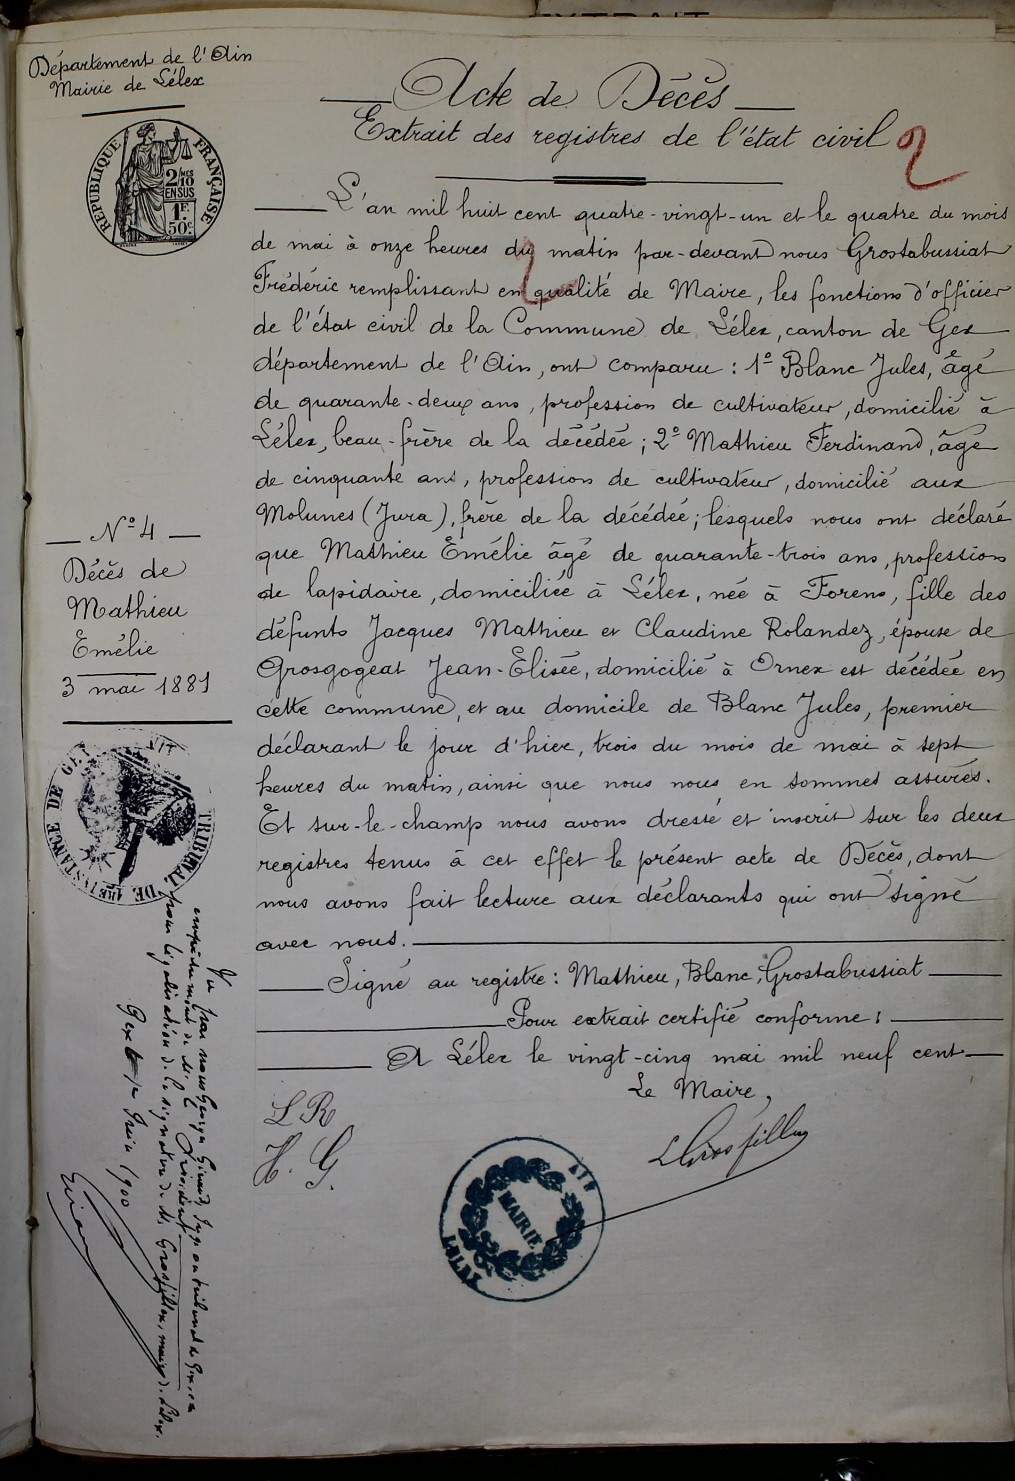 Département de l'Ain
Mairie de Lélex
Acte de Décès
Extrait des registres de l'état civil
2
RÉPUBLIQUE FRANÇAISE
2/10 MES
EN SUS
1F.
50C
L'an mil huit cent quatre-vingt-un et le quatre du mois
de mai à onze heures du matin par-devant nous Grostabussiat
Frédéric remplissant en qualité de Maire, les fonctions d'officier
de l'état civil de la Commune de Lélex, canton de Gex
département de l'Ain, ont comparu : 1º Blanc Jules, âgé
de quarante-deux ans, profession de cultivateur, domicilié à
Lélex, beau-frère de la décédée ; 2º Mathieu Ferdinand, âgé
de cinquante ans, profession de cultivateur, domicilié aux
Molunes (Jura), frère de la décédée ; lesquels nous ont déclaré
que Mathieu Émélie âgé de quarante-trois ans, profession
de lapidaire, domiciliée à Lélex, née à Forens, fille des
défunts Jacques Mathieu et Claudine Rolandez, épouse de
Grosgogeat Jean-Élisée, domicilié à Ornex est décédée en
cette commune, et au domicile de Blanc Jules, premier
déclarant le jour d'hier, trois du mois de mai à sept
heures du matin, ainsi que nous nous en sommes assurés.
Et sur-le-champ nous avons dressé et inscrit sur les deux
registres tenus à cet effet le présent acte de Décès, dont
nous avons fait lecture aux déclarants qui ont signé
avec nous.
Signé au registre : Mathieu, Blanc, Grostabussiat
Pour extrait certifié conforme :
A Lélex le vingt-cinq mai mil neuf cent
Le Maire,
LGrosfillex
L R
H. G.
MAIRIE
LELEX
AIN
Nº 4
Décès de
Mathieu
Émélie
3 mai 1881
TRIBUNAL DE 1RE INSTANCE DE GEX
Vu par nous Georges Girard, Juge au tribunal de Gex, en
empêchement de M. le Président
pour légalisation de la signature de M. Grosfillex, maire de Lélex.
Gex le Juin 1900
Girard